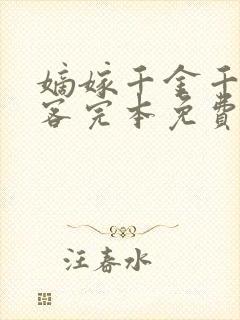 嫡嫁千金千
客完本免費
汪春水